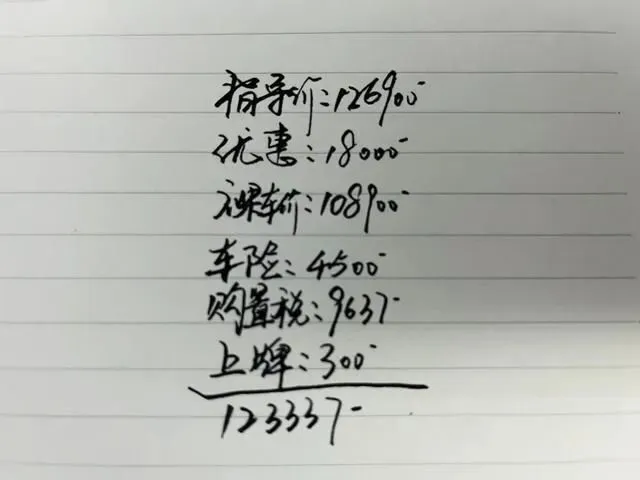 指导价:126900-
优惠:18000-
裸车价:108900-
车险:4500-
购置税:9637-
上牌:300-
123337-